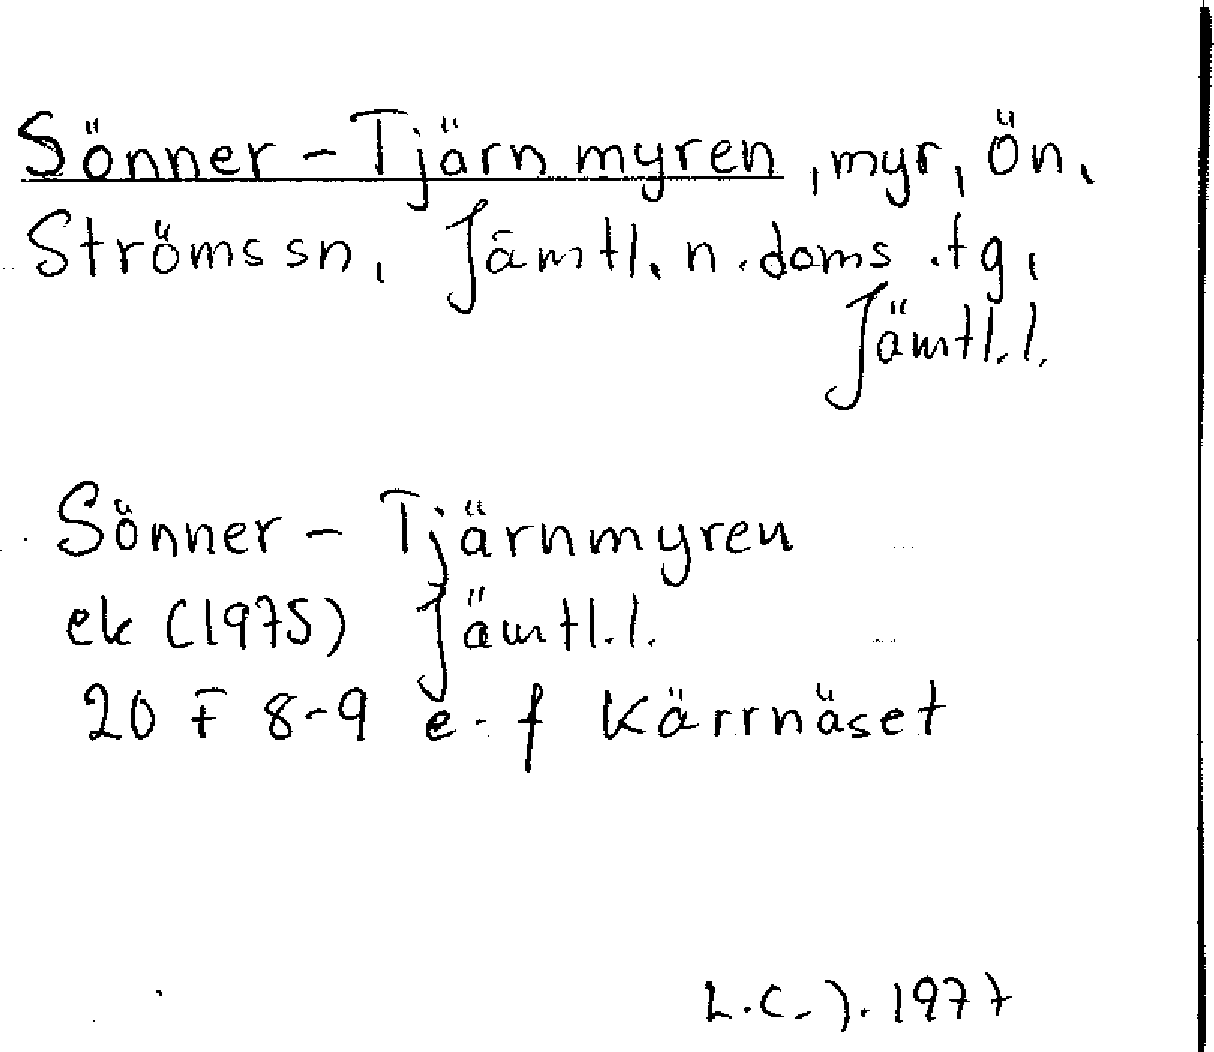 Sönner-Tjärnmyren, myr, Ön,
Ströms sn, Jämtl. n. doms. tg,
Jämtl.l.
Sönner-Tjärnmyren
ek (1975) Jämtl.l.
20 F 8-9 e-f Kärrnäset
L.C.J. 1977